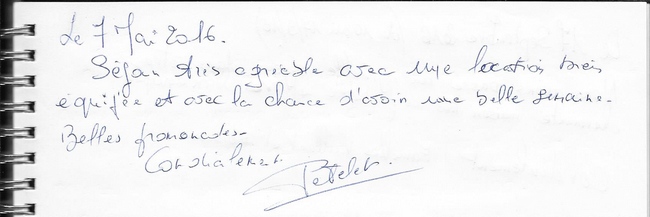 Le 7 Mai 2016.
Séjour très agréable avec une location bien
équipée et avec la chance d'avoir une belle semaine.
Belles promenades.
Cordialement.